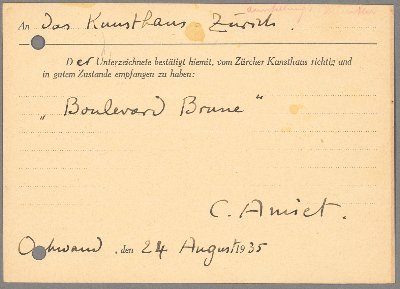 An Das Kunsthaus Zürich.
Der Unterzeichnete bestätigt hiemit, vom Zürcher Kunsthaus richtig und
in gutem Zustande empfangen zu haben:
„Boulevard Brune“
C. Amiet.
Oschwand, den 24 August 1935